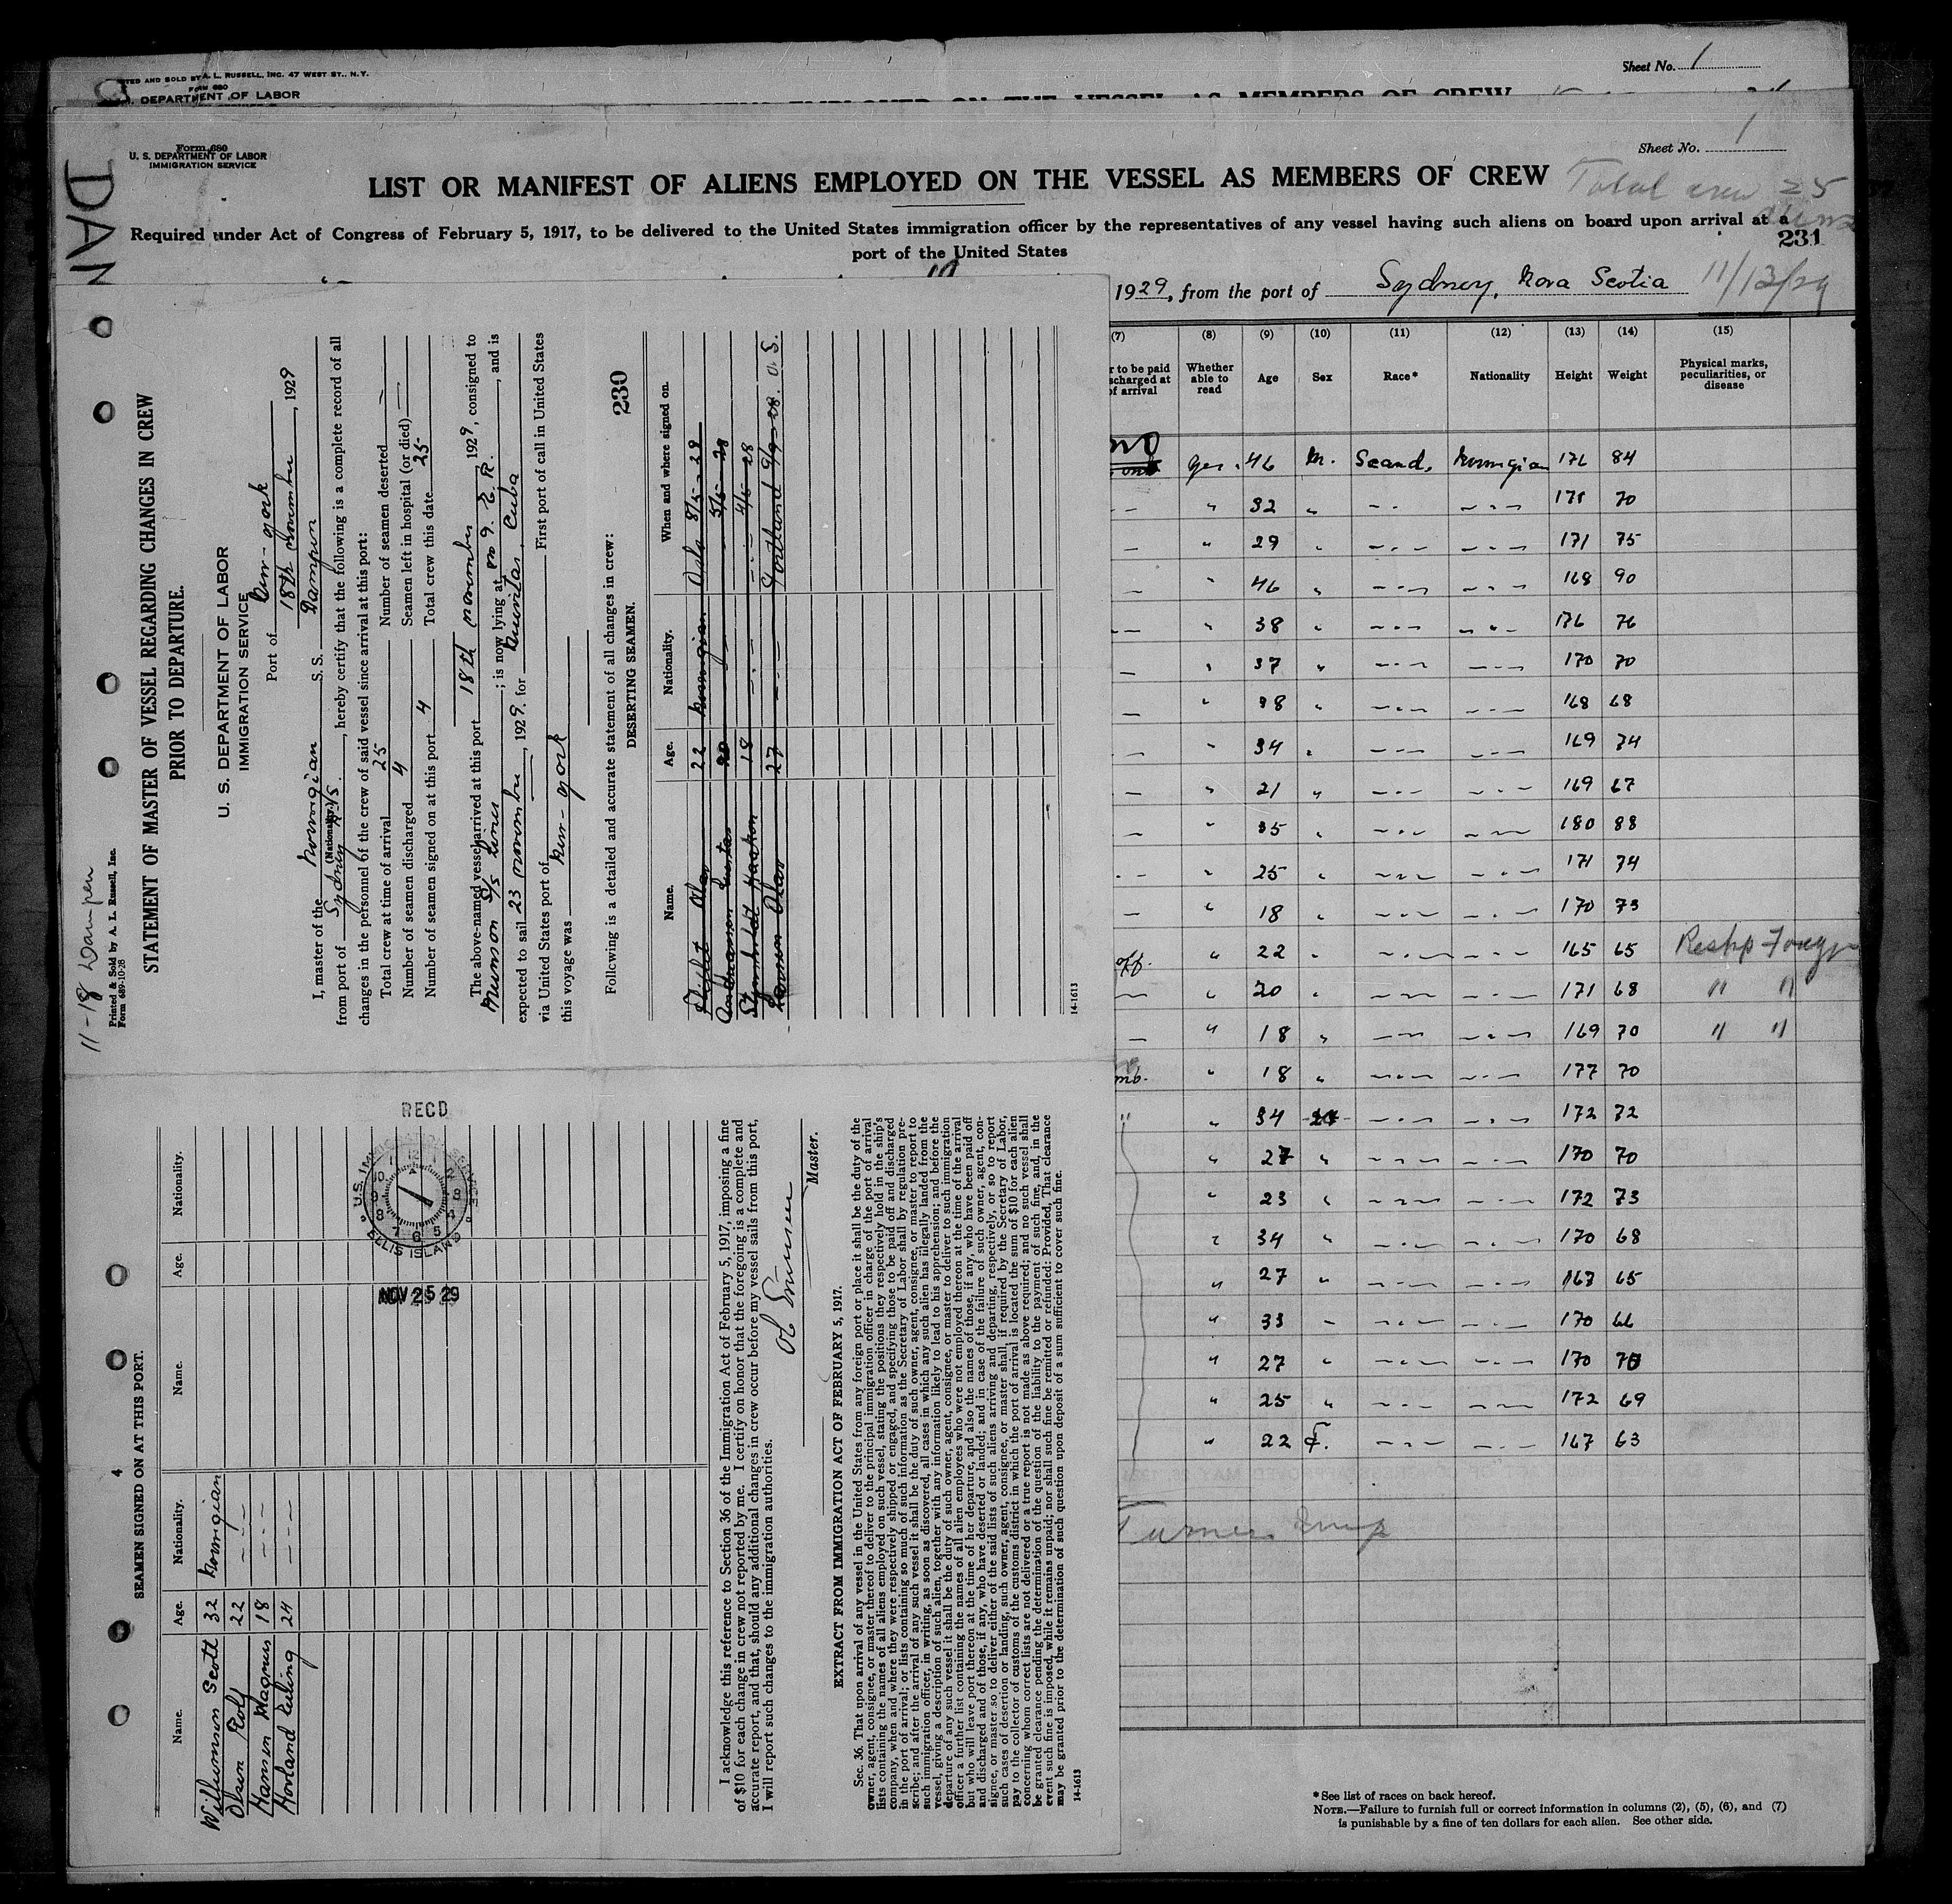 PRINTED AND SOLD BY A. L. RUSSELL, INC. 47 WEST ST., N.Y.
FORM 680
U. S. DEPARTMENT OF LABOR
Sheet No. 1
MEMBERS OF CREW
Form 680
U. S. DEPARTMENT OF LABOR
IMMIGRATION SERVICE
Sheet No. 1
DAN
LIST OR MANIFEST OF ALIENS EMPLOYED ON THE VESSEL AS MEMBERS OF CREW
Total crew 25
aliens
Required under Act of Congress of February 5, 1917, to be delivered to the United States immigration officer by the representatives of any vessel having such aliens on board upon arrival at a
port of the United States
231
1929, from the port of Sydney, Nova Scotia 11/13/29
(7) (8) (9) (10) (11) (12) (13) (14) (15)
r to be paid
scharged at
of arrival
Whether
able to
read
Age Sex Race* Nationality Height Weight
Physical marks,
peculiarities, or
disease
no
yes 46 M. Scand. Norwegian 176 84
" 32 " 171 70
" 29 " 171 75
" 46 " 168 90
" 38 " 176 76
" 37 " 170 70
" 38 " 168 68
" 34 " 169 74
" 21 " 169 67
" 35 " 180 88
" 25 " 171 74
" 18 " 170 73
off. " 22 " 165 65
" 20 " 171 68 " "
" 18 " 169 70 " "
" 18 " 177 70
" " 34 172 72
" 27 " 170 70
" 23 " 172 73
" 34 " 170 68
" 27 " 163 65
" 33 " 170 66
" 27 " 170 70
" 25 " 172 69
" 22 F. 167 63
Turner Insp
*See list of races on back hereof.
NOTE.—Failure to furnish full or correct information in columns (2), (5), (6), and (7)
is punishable by a fine of ten dollars for each alien. See other side.
11-18 Dampen
Printed & Sold by A. L. Russell, Inc.
Form 689-10-28
STATEMENT OF MASTER OF VESSEL REGARDING CHANGES IN CREW
PRIOR TO DEPARTURE.
U. S. DEPARTMENT OF LABOR
IMMIGRATION SERVICE
Port of New-York
18th November, 1929
I, master of the Norwegian S. S. Dampen
(Nationality.)
from port of Sydney N/S., hereby certify that the following is a complete record of all
changes in the personnel of the crew of said vessel since arrival at this port:
Total crew at time of arrival 25 Number of seamen deserted —
Number of seamen discharged 4 Seamen left in hospital (or died) —
Number of seamen signed on at this port 4 Total crew this date 25
The above-named vessel arrived at this port 18th November, 1929, consigned to
Munson S/S Lines; is now lying at Pr 9. E. R., and is
expected to sail 23 November, 1929. for Nuevitas, Cuba
via United States port of First port of call in United States
this voyage was New-York
230
Following is a detailed and accurate statement of all changes in crew:
DESERTING SEAMEN.
Name. Age. Nationality. When and where signed on.
Olav 22 Norwegian Oslo 8/5-28
20 5/5-28
Haakon 18 4/5-28
Olav 27 0. S.
14-1613
4
SEAMEN SIGNED ON AT THIS PORT.
Name. Age. Nationality. Name. Age. Nationality.
Williamson Scott 32 Norwegian
Olsen Rolf 22
Hansen Magnus 18
Hovland Erling 24
RECD
U.S. IMMIGRATION SERVICE
ELLIS ISLAND
NOV 25 29
I acknowledge this reference to Section 36 of the Immigration Act of February 5, 1917, imposing a fine
of $10 for each change in crew not reported by me. I certify on honor that the foregoing is a complete and
accurate report, and that, should any additional changes in crew occur before my vessel sails from this port,
I will report such changes to the immigration authorities.
Master.
EXTRACT FROM IMMIGRATION ACT OF FEBRUARY 5, 1917.
Sec. 36. That upon arrival of any vessel in the United States from any foreign port or place it shall be the duty of the
owner, agent, consignee, or master thereof to deliver to the principal immigration officer in charge of the port of arrival
lists containing the names of all aliens employed on such vessel, stating the positions they respectively hold in the ship's
company, when and where they were respectively shipped or engaged, and specifying those to be paid off and discharged
in the port of arrival; or lists containing so much of such information as the Secretary of Labor shall by regulation pre-
scribe; and after the arrival of any such vessel it shall be the duty of such owner, agent, consignee, or master to report to
such immigration officer, in writing, as soon as discovered, all cases in which any such alien has illegally landed from the
vessel, giving a description of such alien, together with any information likely to lead to his apprehension; and before the
departure of any such vessel it shall be the duty of such owner, agent, consignee, or master to deliver to such immigration
officer a further list containing the names of all alien employees who were not employed thereon at the time of the arrival
but who will leave port thereon at the time of her departure, and also the names of those, if any, who have been paid off
and discharged and of those, if any, who have deserted or landed; and in case of the failure of such owner, agent, con-
signee, or master so to deliver either of the said lists of such aliens arriving and departing, respectively, or so to report
such cases of desertion or landing, such owner, agent, consignee, or master shall, if required by the Secretary of Labor,
pay to the collector of customs of the customs district in which the port of arrival is located the sum of $10 for each alien
concerning whom correct lists are not delivered or a true report is not made as above required; and no such vessel shall
be granted clearance pending the determination of the question of the liability to the payment of such fine, and, in the
event such fine is imposed, while it remains unpaid; nor shall such fine be remitted or refunded: Provided, That clearance
may be granted prior to the determination of such question upon deposit of a sum sufficient to cover such fine.
14-1613